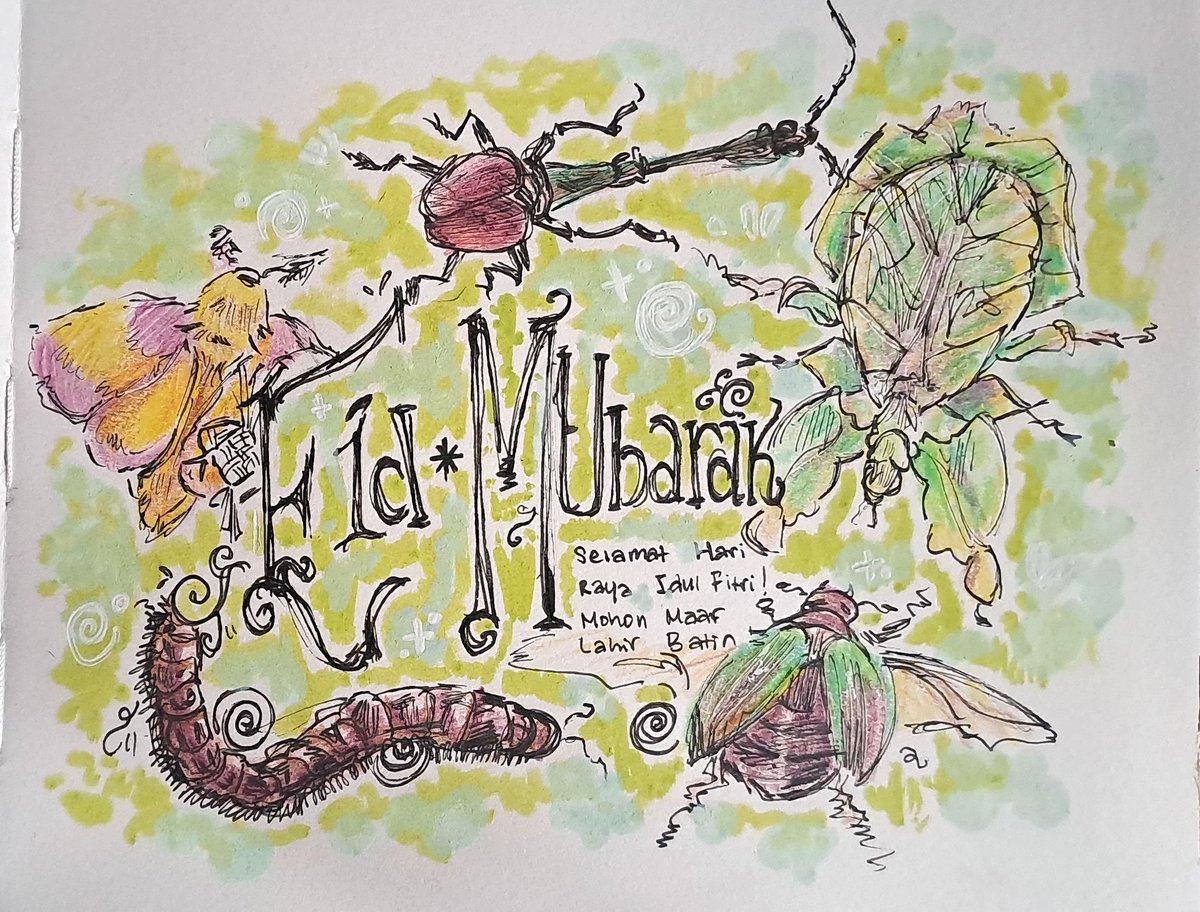 Eid * MUbarak
Selamat Hari
Raya Idul Fitri!
Mohon Maaf
Lahir Batin